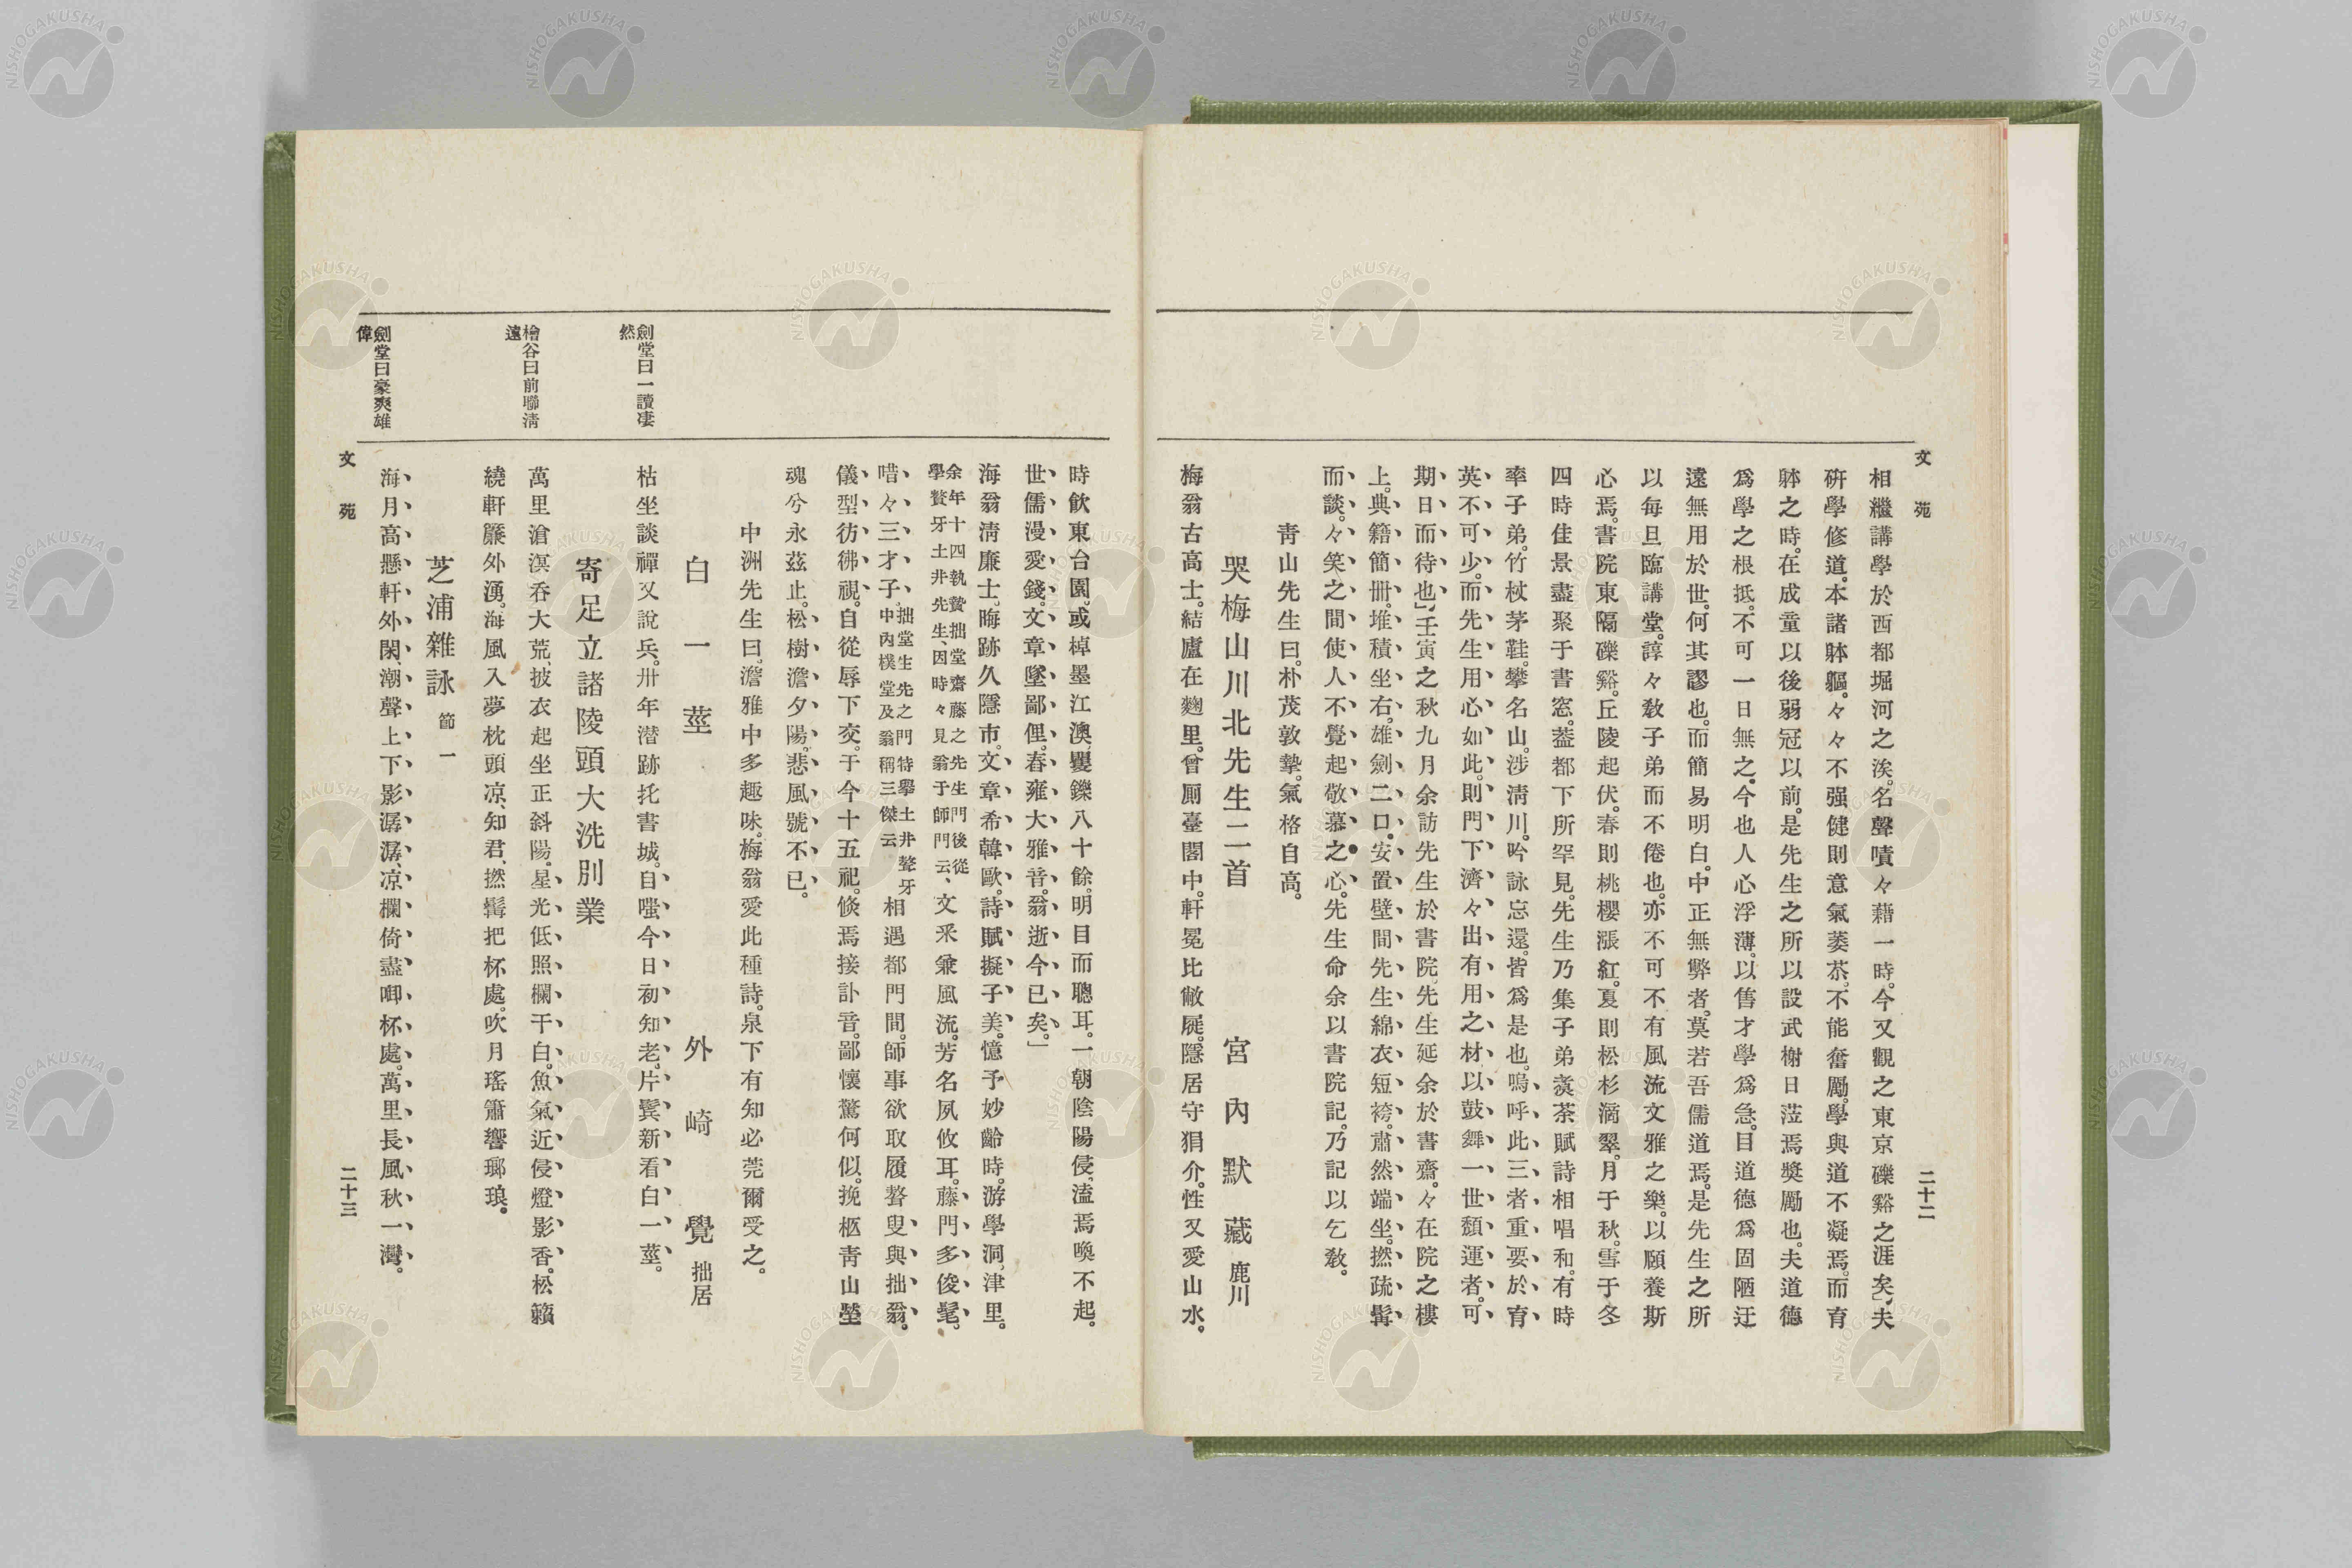 文苑
二十二
相繼講學於西都堀河之涘。名聲嘖々藉一時。今又觀之東京礫谿之涯矣」夫
硏學修道。本諸躰軀。々々不强健則意氣萎苶。不能奮勵。學與道不凝焉。而育
躰之時。在成童以後弱冠以前。是先生之所以設武榭日蒞焉奬勵也。夫道德
爲學之根抵。不可一日無之。今也人心浮薄。以售才學爲急。目道德爲固陋迂
遠無用於世。何其謬也。而簡易明白。中正無弊者。莫若吾儒道焉。是先生之所
以每旦臨講堂。諄々敎子弟而不倦也。亦不可不有風流文雅之樂。以願養斯
心焉。書院東隔礫谿。丘陵起伏。春則桃櫻漲紅。夏則松杉滴翠。月于秋。雪于冬
四時佳景盡聚于書窓。蓋都下所罕見。先生乃集子弟煑茶賦詩相唱和。有時
率子弟。竹杖茅鞋。攀名山。涉淸川。吟詠忘還。皆爲是也。嗚呼此三者重要於育
英不可少。而先生用心如此。則門下濟々出有用之材以鼓舞一世頹運者。可
期日而待也」壬寅之秋九月余訪先生於書院。先生延余於書齋。々在院之樓
上。典籍簡冊。堆積坐右。雄劍二口。安置壁間。先生綿衣短袴。肅然端坐。撚疏髯
而談。々笑之間使人不覺起敬慕之心。先生命余以書院記。乃記以乞敎。
靑山先生曰。朴茂敦摯。氣格自高。
哭梅山川北先生二首　宮內默藏 鹿川
梅翁古高士。結廬在麴里。曾厠臺閣中。軒冕比敝屣。隱居守狷介。性又愛山水。
時飮東台園。或棹墨江澳。矍鑠八十餘。明目而聰耳。一朝陰陽侵。溘焉喚不起。
世儒漫愛錢。文章墜鄙俚。春雍大雅音。翁逝今已矣。」
海翁淸廉士。晦跡久隱市。文章希韓歐。詩賦擬子美。憶予妙齡時。游學洞津里。
余年十四執贄拙堂齋藤之先生門後從
學贅牙土井先生、因時々見翁于師門云、
文采兼風流。芳名夙攸耳。藤門多俊髦。
唶々三才子。
拙堂生先之門特擧土井聱牙
中內樸堂及翁稱三傑云
相遇都門間。師事欲取履聱叟與拙翁。
儀型彷彿視。自從辱下交。于今十五祀。倐焉接訃音。鄙懷驚何似。挽柩靑山塋
魂兮永茲止。松樹澹夕陽。悲風號不已。
中洲先生曰。澹雅中多趣味。梅翁愛此種詩。泉下有知必莞爾受之。
白一莖　外崎覺 拙居
劍堂曰一讀凄
然
枯坐談禪又說兵。卅年潛跡托書城。自嗤今日初知老。片鬂新看白一莖。
寄足立諸陵頭大洗別業
檜谷曰前聯淸
遠
萬里滄溟呑大荒。披衣起坐正斜陽。星光低照欄干白。魚氣近侵燈影香。松籟
繞軒簾外湧。海風入夢枕頭凉、知君、撚髯把杯處。吹月瑤簫響琅琅。
芝浦雜詠 節一
劍堂曰豪爽雄
偉
海月高懸軒外閑、潮聲上下影潺潺、凉欄倚盡啣杯處。萬里長風秋一灣。
文苑
二十三